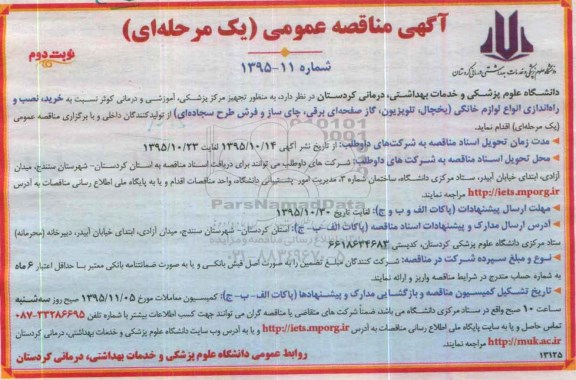 آگهی مناقصه عمومی (یک مرحله‌ای)
نوبت دوم
شماره ۱۱-۱۳۹۵
دانشگاه علوم پزشکی و خدمات بهداشتی، درمانی کردستان در نظر دارد، به منظور تجهیز مرکز پزشکی، آموزشی و درمانی کوثر نسبت به خرید، نصب و
راه‌اندازی انواع لوازم خانگی (یخچال، تلویزیون، گاز صفحه‌ای برقی، چای ساز و فرش طرح سجاده‌ای) از تولیدکنندگان داخلی و با برگزاری مناقصه عمومی
(یک مرحله‌ای) اقدام نماید.
مدت زمان تحویل اسناد مناقصه به شرکت‌های داوطلب: از تاریخ نشر آگهی ۱۳۹۵/۱۰/۱۴ لغایت ۱۳۹۵/۱۰/۲۳
محل تحویل اسناد مناقصه به شرکت های داوطلب: شرکت های داوطلب می توانند برای دریافت اسناد مناقصه به استان کردستان- شهرستان سنندج، میدان
آزادی، ابتدای خیابان آبیدر، ستاد مرکزی دانشگاه، ساختمان شماره ۲، مدیریت امور پشتیبانی دانشگاه، واحد مناقصات اقدام و یا به پایگاه ملی اطلاع رسانی مناقصات به آدرس
http://iets.mporg.ir مراجعه نمایند.
مهلت ارسال پیشنهادات (پاکات الف و ب و ج): لغایت تاریخ ۱۳۹۵/۱۰/۳۰
آدرس ارسال مدارک و پیشنهادات اسناد مناقصه (پاکات الف- ب- ج): استان کردستان- شهرستان سنندج، میدان آزادی، ابتدای خیابان آبیدر، دبیرخانه (محرمانه)
ستاد مرکزی دانشگاه علوم پزشکی کردستان، کدپستی ۶۶۱۸۶۳۴۶۸۳
نوع و مبلغ سپرده شرکت در مناقصه: شرکت کنندگان مبلغ تضمین را به صورت اصل فیش بانکی و یا به صورت ضمانتنامه بانکی معتبر با حداقل اعتبار ۶ ماه
به شماره حساب مندرج در شرایط مناقصه واریز و ارائه نمایند.
تاریخ تشکیل کمیسیون مناقصه و بازگشایی مدارک و پیشنهادها (پاکات الف- ب- ج): کمیسیون معاملات مورخ ۱۳۹۵/۱۱/۰۵ صبح روز سه‌شنبه
ساعت ۱۰ صبح واقع در ستاد مرکزی دانشگاه می باشد، ضمناً شرکت های متقاضی یا مناقصه گران می توانند جهت کسب اطلاعات بیشتر با شماره تلفن ۳۳۲۸۶۶۹۵-۰۸۷
تماس حاصل و یا به سایت پایگاه ملی اطلاع رسانی مناقصات به آدرس http://iets.mporg.ir و یا به آدرس وب سایت دانشگاه علوم پزشکی و خدمات بهداشتی، درمانی کردستان
http://muk.ac.ir مراجعه نمایند.
روابط عمومی دانشگاه علوم پزشکی و خدمات بهداشتی، درمانی کردستان
۱۳۱۲۵
ParsNamadData